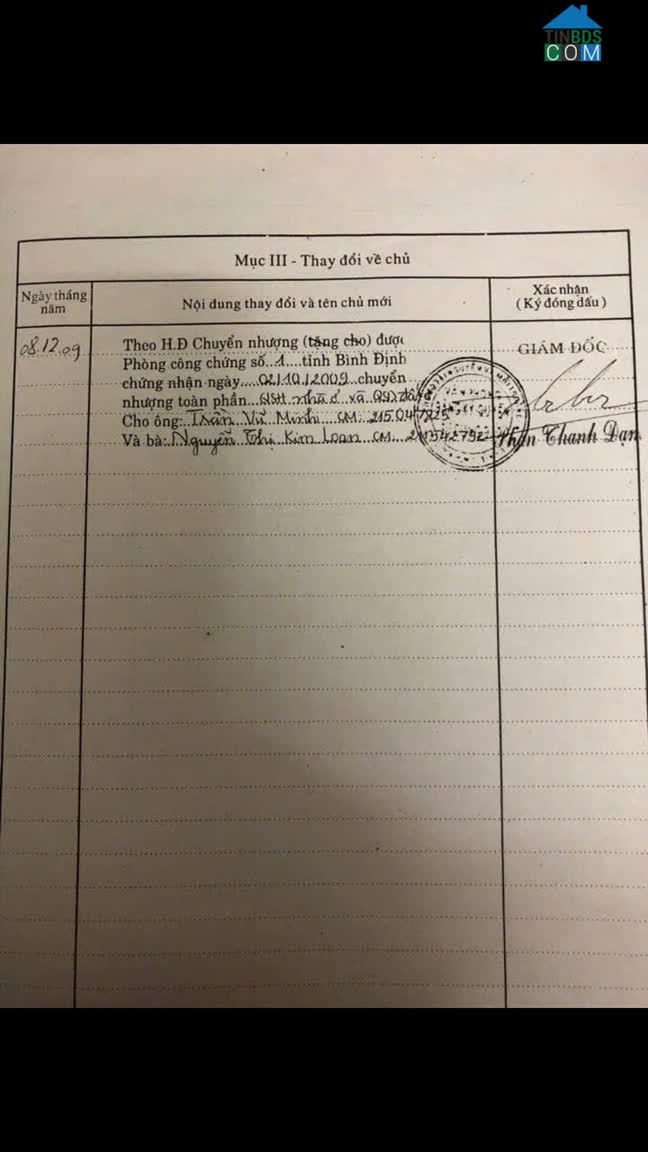 TINBDS
COM
Mục III - Thay đổi về chủ
Ngày tháng năm
Nội dung thay đổi và tên chủ mới
Xác nhận
( Ký đóng dấu )
08.12.09
Theo H.Đ Chuyển nhượng (tặng cho) được
Phòng công chứng số..1....tỉnh Bình Định
chứng nhận ngày....02/10/2009..chuyển
nhượng toàn phần...QSH nhà ở và QSD đất ở
Cho ông: Trần Vũ Minh CM:
Và bà: Nguyễn Thị Kim Loan CM:
GIÁM ĐỐC
Thanh